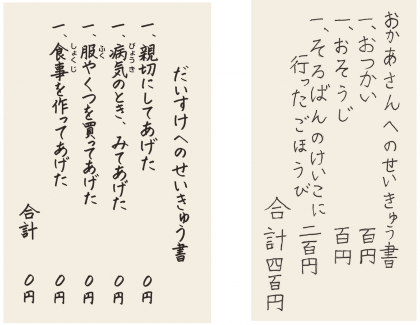 おかあさんへのせいきゅう書
一、おつかい 百円
一、おそうじ 百円
一、そろばんのけいこに
行ったごほうび 二百円
合計 四百円
だいすけへのせいきゅう書
一、親切にしてあげた 0円
一、病気のとき、みてあげた 0円
びょうき
一、服やくつを買ってあげた 0円
ふく
一、食事を作ってあげた 0円
しょくじ
合計 0円